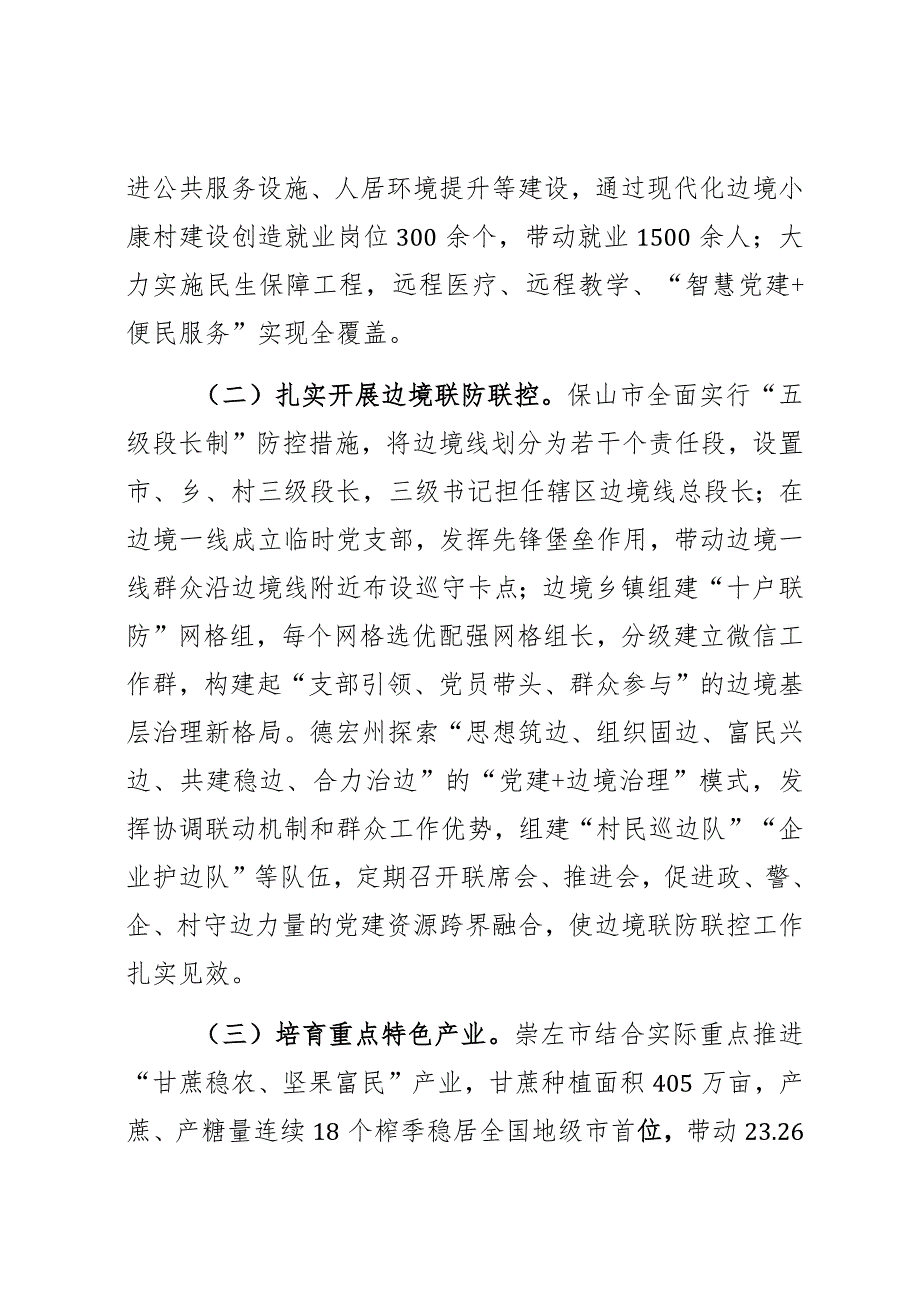 进公共服务设施、人居环境提升等建设，通过现代化边境小
康村建设创造就业岗位 300 余个，带动就业 1500 余人；大
力实施民生保障工程，远程医疗、远程教学、“智慧党建+
便民服务”实现全覆盖。
（二）扎实开展边境联防联控。保山市全面实行“五
级段长制”防控措施，将边境线划分为若干个责任段，设置
市、乡、村三级段长，三级书记担任辖区边境线总段长；在
边境一线成立临时党支部，发挥先锋堡垒作用，带动边境一
线群众沿边境线附近布设巡守卡点；边境乡镇组建“十户联
防”网格组，每个网格选优配强网格组长，分级建立微信工
作群，构建起“支部引领、党员带头、群众参与”的边境基
层治理新格局。德宏州探索“思想筑边、组织固边、富民兴
边、共建稳边、合力治边”的“党建+边境治理”模式，发
挥协调联动机制和群众工作优势，组建“村民巡边队”“企
业护边队”等队伍，定期召开联席会、推进会，促进政、警、
企、村守边力量的党建资源跨界融合，使边境联防联控工作
扎实见效。
（三）培育重点特色产业。崇左市结合实际重点推进
“甘蔗稳农、坚果富民”产业，甘蔗种植面积 405 万亩，产
蔗、产糖量连续 18 个榨季稳居全国地级市首位，带动 23.26